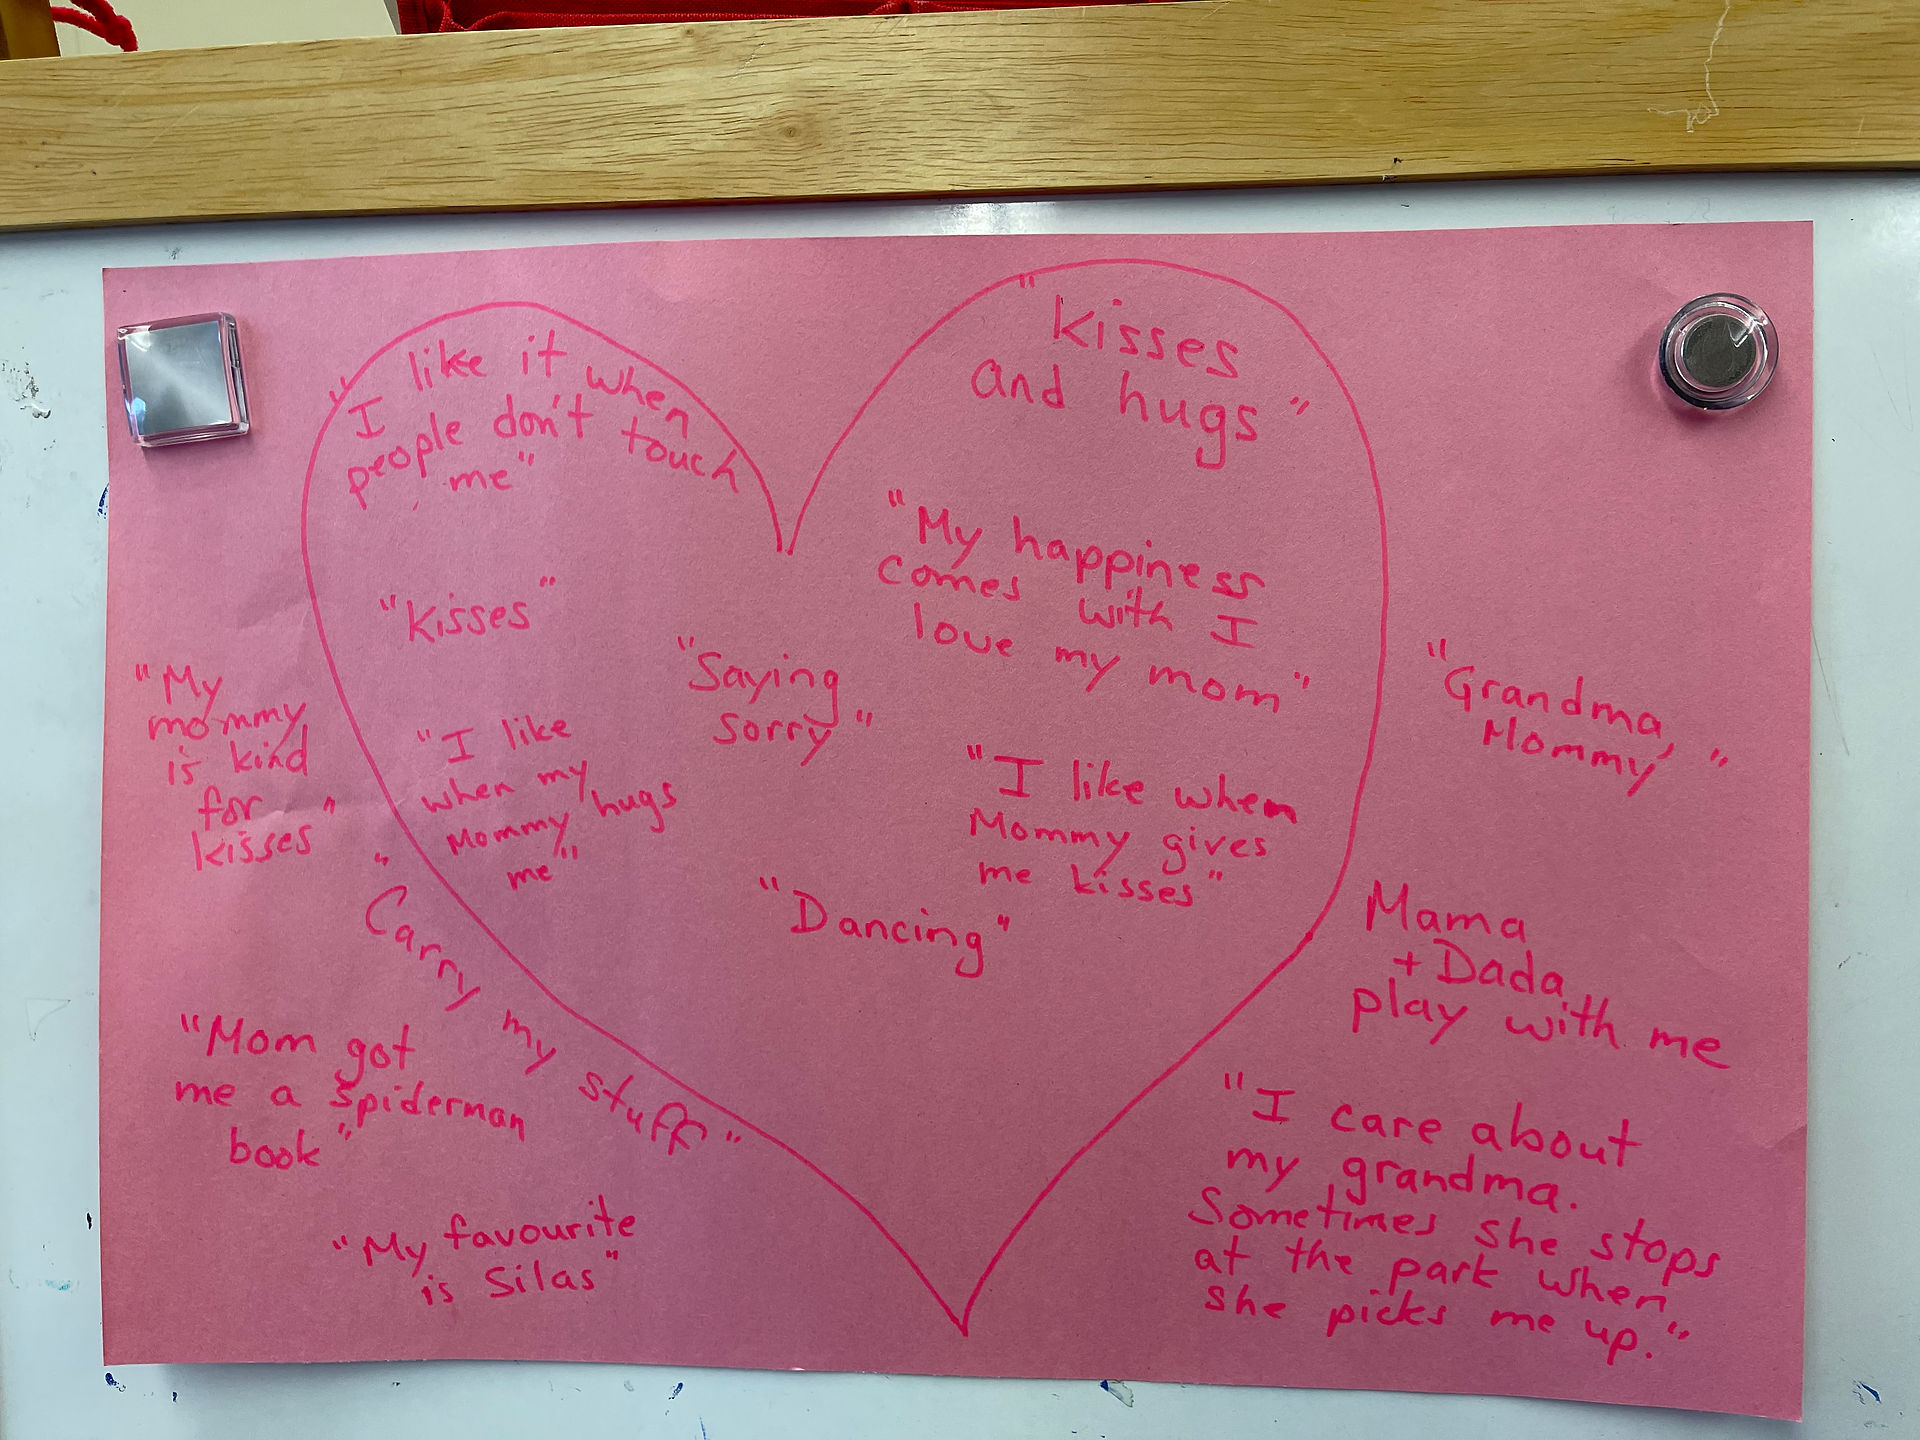 "I like it when
people don't touch
me"
"kisses
and hugs"
"My happiness
comes with I
love my mom"
"kisses"
"Saying
sorry"
"My
mommy
is kind
for
kisses"
"I like
when my
Mommy hugs
me"
"I like when
Mommy gives
me kisses"
"Grandma,
Mommy"
"Dancing"
"Carry my stuff"
Mama
+Dada
play with me
"Mom got
me a spiderman
book"
"My favourite
is Silas"
"I care about
my grandma.
Sometimes she stops
at the park when
she picks me up."